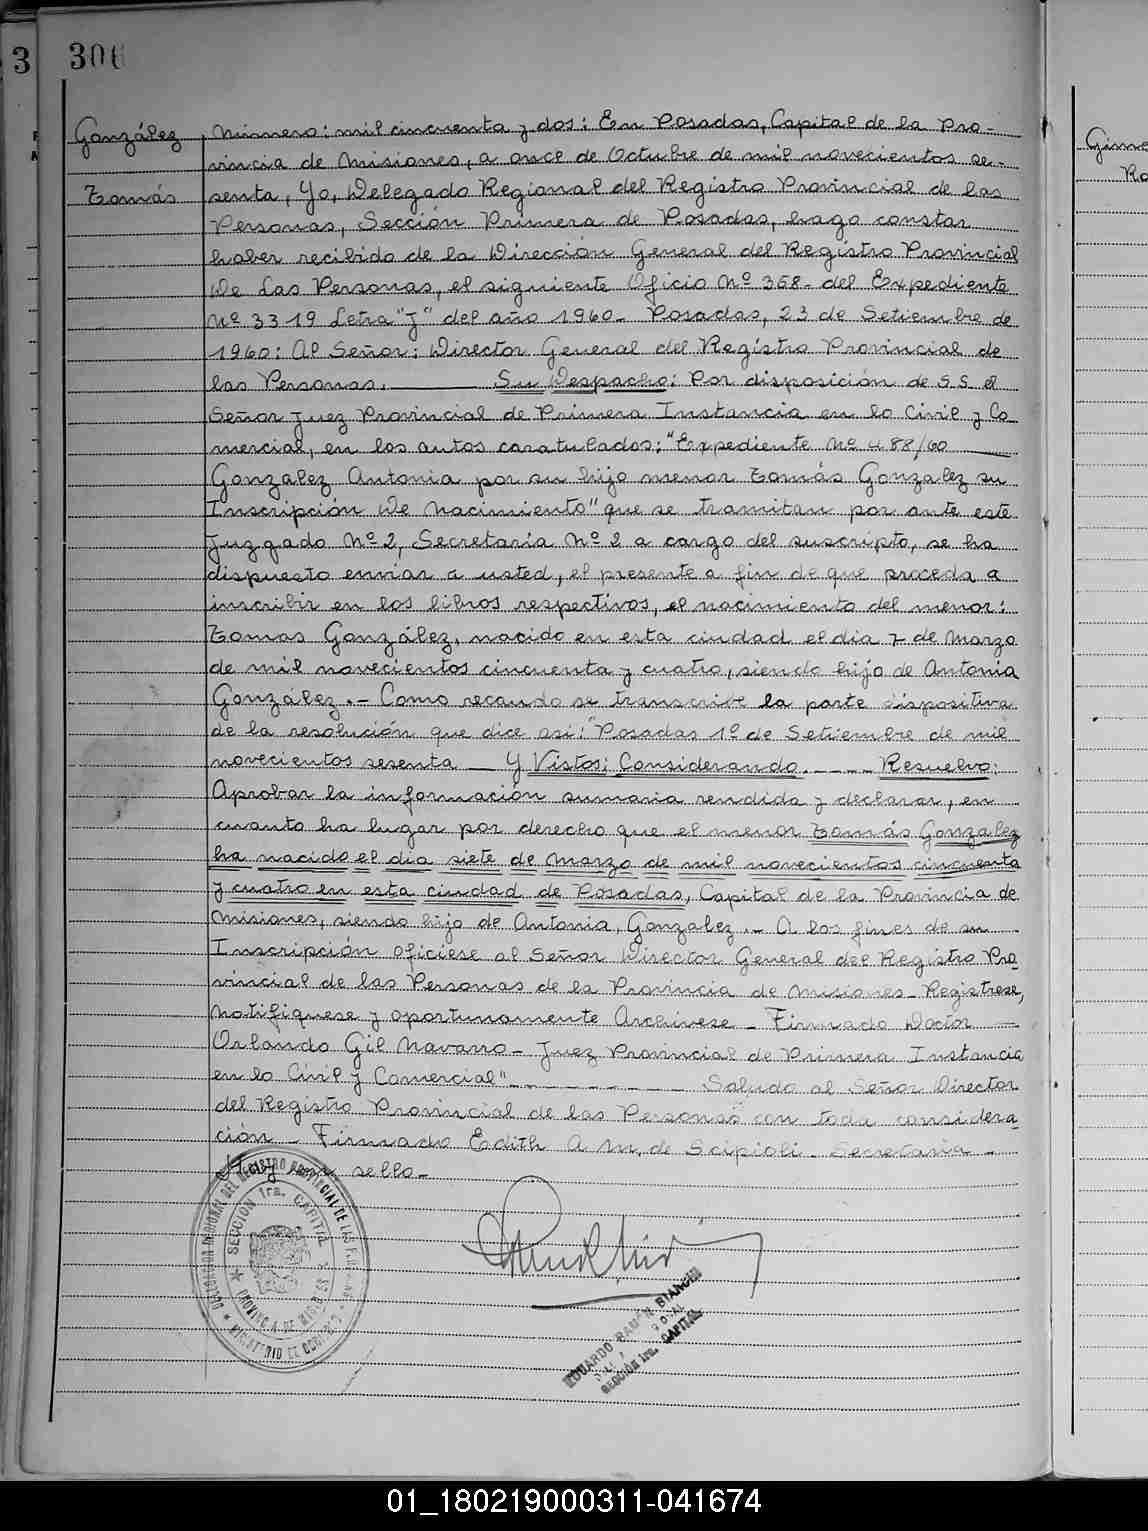 3
300
González
Tomás
Número: mil cincuenta y dos: En Posadas, Capital de la Pro-
vincia de Misiones, a once de Octubre de mil novecientos se-
senta, Yo, Delegado Regional del Registro Provincial de las
Personas, Sección Primera de Posadas, hago constar
haber recibido de la Dirección General del Registro Provincial
De Las Personas, el siguiente Oficio Nº 368- del Expediente
Nº 3319 Letra "J" del año 1960- Posadas, 23 de Setiembre de
1960: Al Señor: Director General del Registro Provincial de
las Personas. Su Despacho: Por disposición de S.S. el
Señor Juez Provincial de Primera Instancia en lo Civil y Co
mercial, en los autos caratulados: "Expediente Nº 488/60
Gonzalez Antonia por su hijo menor Tomás Gonzalez su
Inscripción De Nacimiento" que se tramitan por ante este
Juzgado Nº 2, Secretaría Nº 2 a cargo del suscripto, se ha
dispuesto enviar a usted, el presente a fin de que proceda a
inscribir en los libros respectivos, el nacimiento del menor:
Tomas González, nacido en esta ciudad el día 7 de Marzo
de mil novecientos cincuenta y cuatro, siendo hijo de Antonia
González.- Como recaudo se transcribe la parte dispositiva
de la resolución que dice así: "Posadas 1º de Setiembre de mil
novecientos sesenta — Y Vistos: Considerando.---- Resuelvo:
Aprobar la información sumaria rendida y declarar, en
cuanto ha lugar por derecho que el menor Tomás Gonzalez
ha nacido el día siete de Marzo de mil novecientos cincuenta
y cuatro en esta ciudad de Posadas, Capital de la Provincia de
Misiones, siendo hijo de Antonia, Gonzalez.- A los fines de su
Inscripción ofíciese al Señor Director General del Registro Pro
vincial de las Personas de la Provincia de Misiones- Regístrese,
Notifíquese y oportunamente Archívese- Firmado Doctor —
Orlando Gil Navarro- Juez Provincial de Primera Instancia
en lo Civil y Comercial"--------- Saludo al Señor Director
del Registro Provincial de las Personas con toda considera-
ción - Firmado Edith A M. de Scipioli- Secretaria -
Hay un sello-
DELEGACION REGIONAL DEL REGISTRO PROVINCIAL DE LAS PERSONAS
SECCION 1ra. CAPITAL
PROVINCIA DE MISIONES
MINISTERIO DE GOBIERNO
EDUARDO RAMÓN BIANCHI
SECCIÓN 1ra. CAPITAL
Gime
Ro
01_180219000311-041674